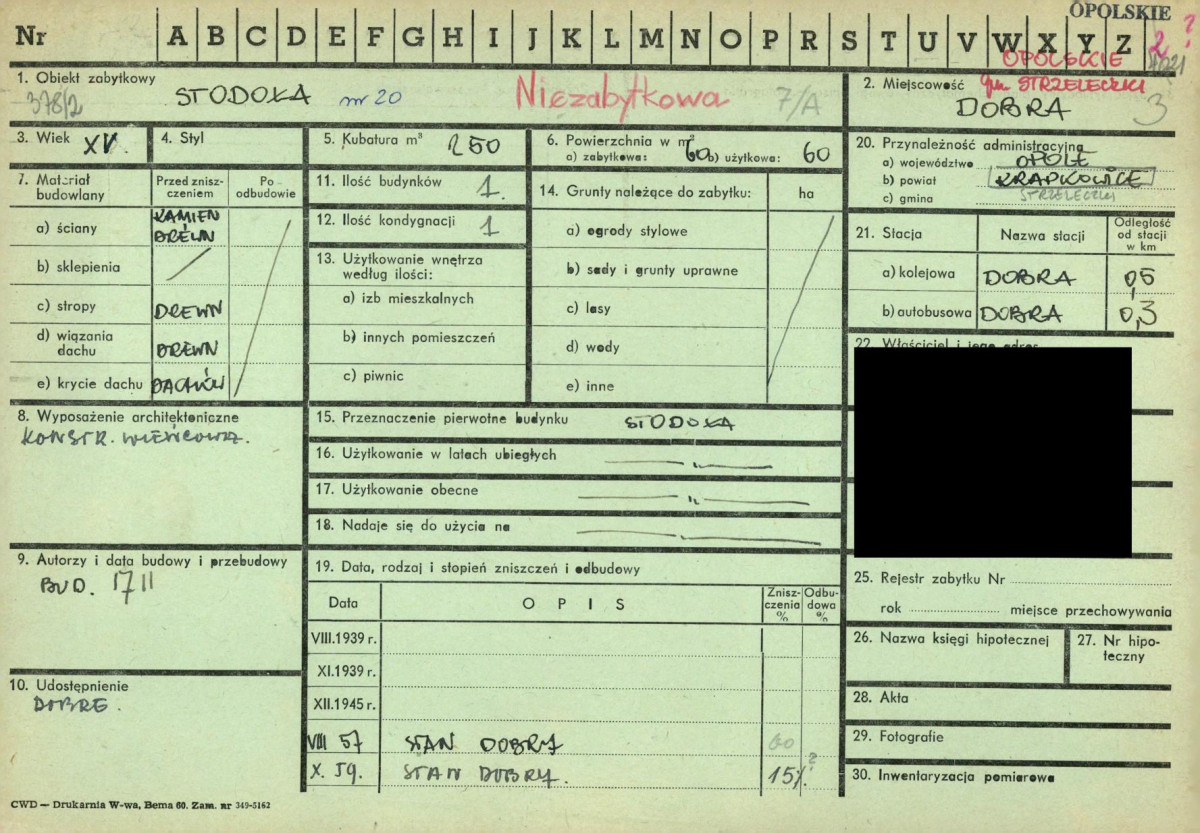 OPOLSKIE
Nr A B C D E F G H I J K L M N O P R S T U V W X Y Z
1. Obiekt zabytkowy
378/2
STODOŁA nr 20
Niezabytkowa 7/A
OPOLSKIE
2. Miejscowość gm STRZELECZKI
DOBRA 3
3. Wiek XV.
4. Styl
5. Kubatura m³ 250
6. Powierzchnia w m²
a) zabytkowa: 60 b) użytkowa: 60
7. Materiał budowlany
Przed znisz-
czeniem
Po -
odbudowie
a) ściany KAMIEN
DREWN
b) sklepienia
c) stropy DREWN
d) wiązania
dachu DREWN
e) krycie dachu DACHÓW
8. Wyposażenie architektoniczne
KONSTR. WIEŃCOWA.
9. Autorzy i data budowy i przebudowy
BUD. 1711
10. Udostępnienie
DOBRE.
11. Ilość budynków 1
12. Ilość kondygnacji 1
13. Użytkowanie wnętrza
według ilości:
a) izb mieszkalnych
b) innych pomieszczeń
c) piwnic
14. Grunty należące do zabytku: ha
a) ogrody stylowe
b) sady i grunty uprawne
c) lasy
d) wody
e) inne
15. Przeznaczenie pierwotne budynku STODOŁA
16. Użytkowanie w latach ubiegłych — „ —
17. Użytkowanie obecne — „ —
18. Nadaje się do użycia na
19. Data, rodzaj i stopień zniszczeń i odbudowy
Data OPIS Znisz-
czenia
% Odbu-
dowa
%
VIII.1939 r.
XI.1939 r.
XII.1945 r.
VIII 57 STAN DOBRY
X. 59. STAN DOBRY. 15%. ?
20. Przynależność administracyjna
a) województwo OPOLE
b) powiat KRAPKOWICE
c) gmina STRZELECZKI
21. Stacja Nazwa stacji Odległość
od stacji
w km
a) kolejowa DOBRA 0,5
b) autobusowa DOBRA 0,3
22. Właściciel i jego adres
25. Rejestr zabytku Nr
rok miejsce przechowywania
26. Nazwa księgi hipotecznej
27. Nr hipo-
teczny
28. Akta
29. Fotografie
30. Inwentaryzacja pomiarowa
CWD — Drukarnia W-wa, Bema 60. Zam. nr 349-5162